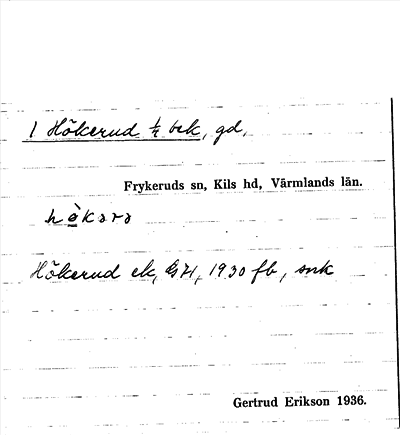 1 Hökerud ½ bek, gd,
Frykeruds sn, Kils hd, Värmlands län.
Hökerud ek, GH, 1930 fb, snk
Gertrud Erikson 1936.